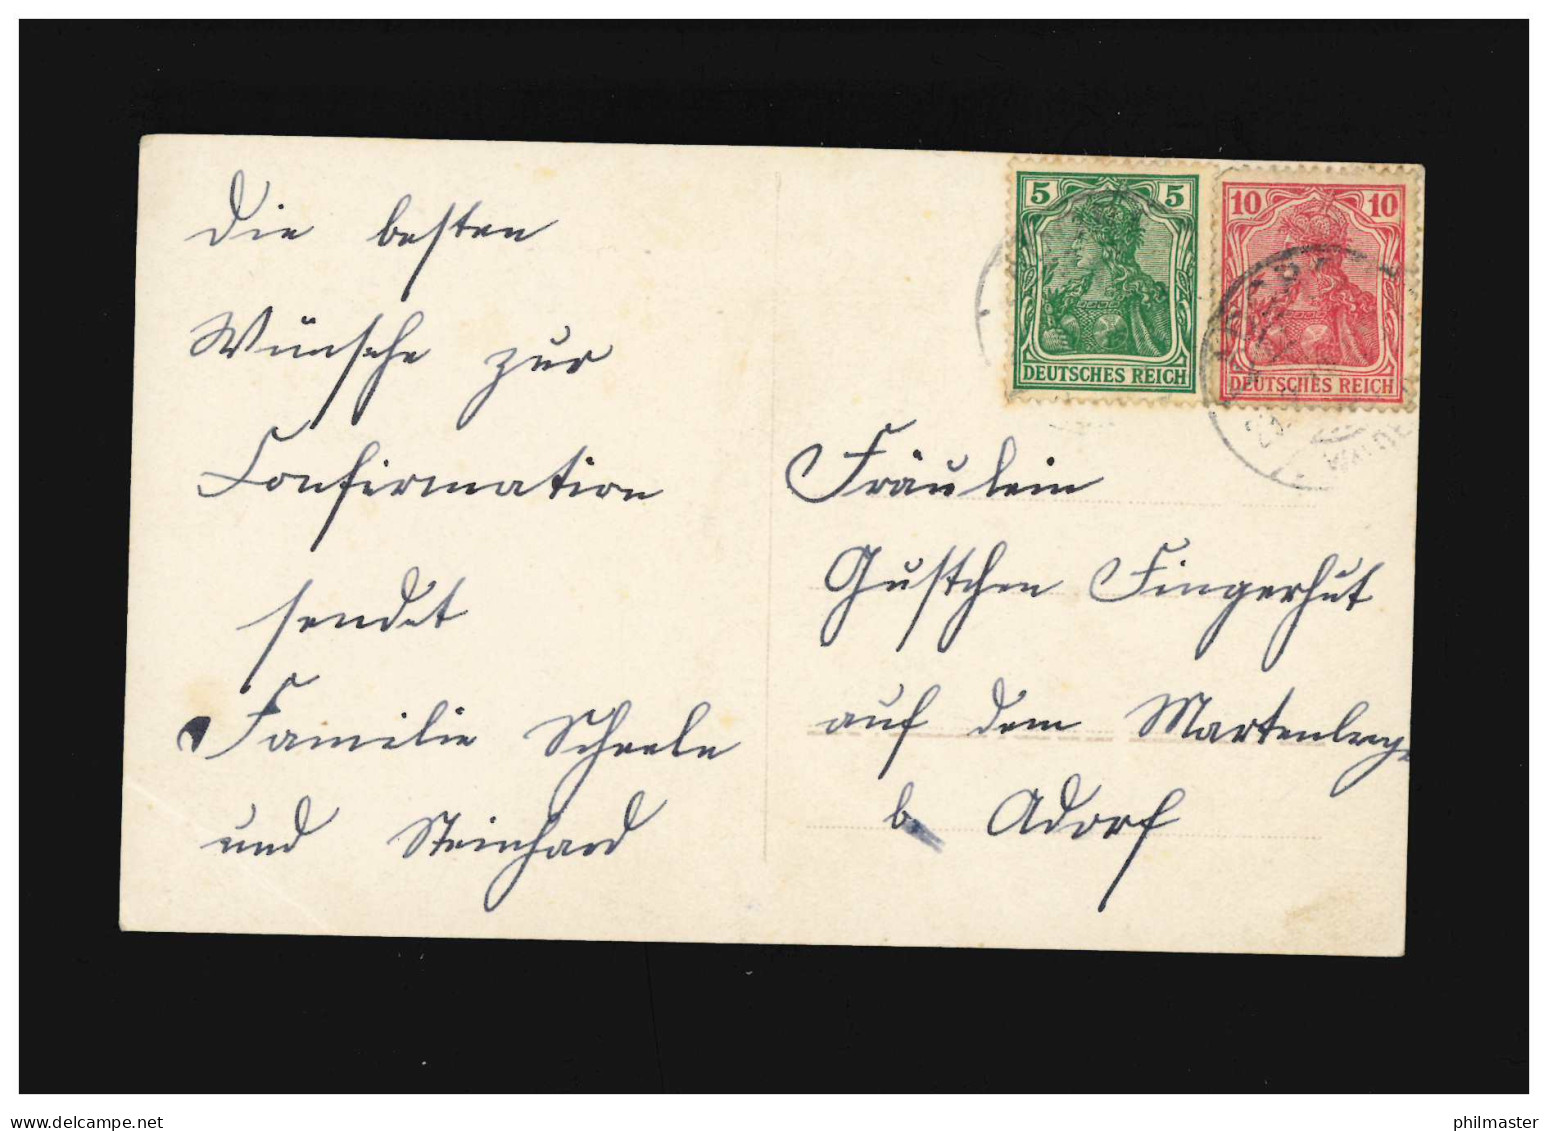 Die besten
Wünsche zur
Confirmation
sendet
Familie Scheele
und Steinhard
5 5
DEUTSCHES REICH
10 10
DEUTSCHES REICH
Fräulein
Gustchen Fingerhut
auf dem
b. Adorf
www.delcampe.net
philmaster